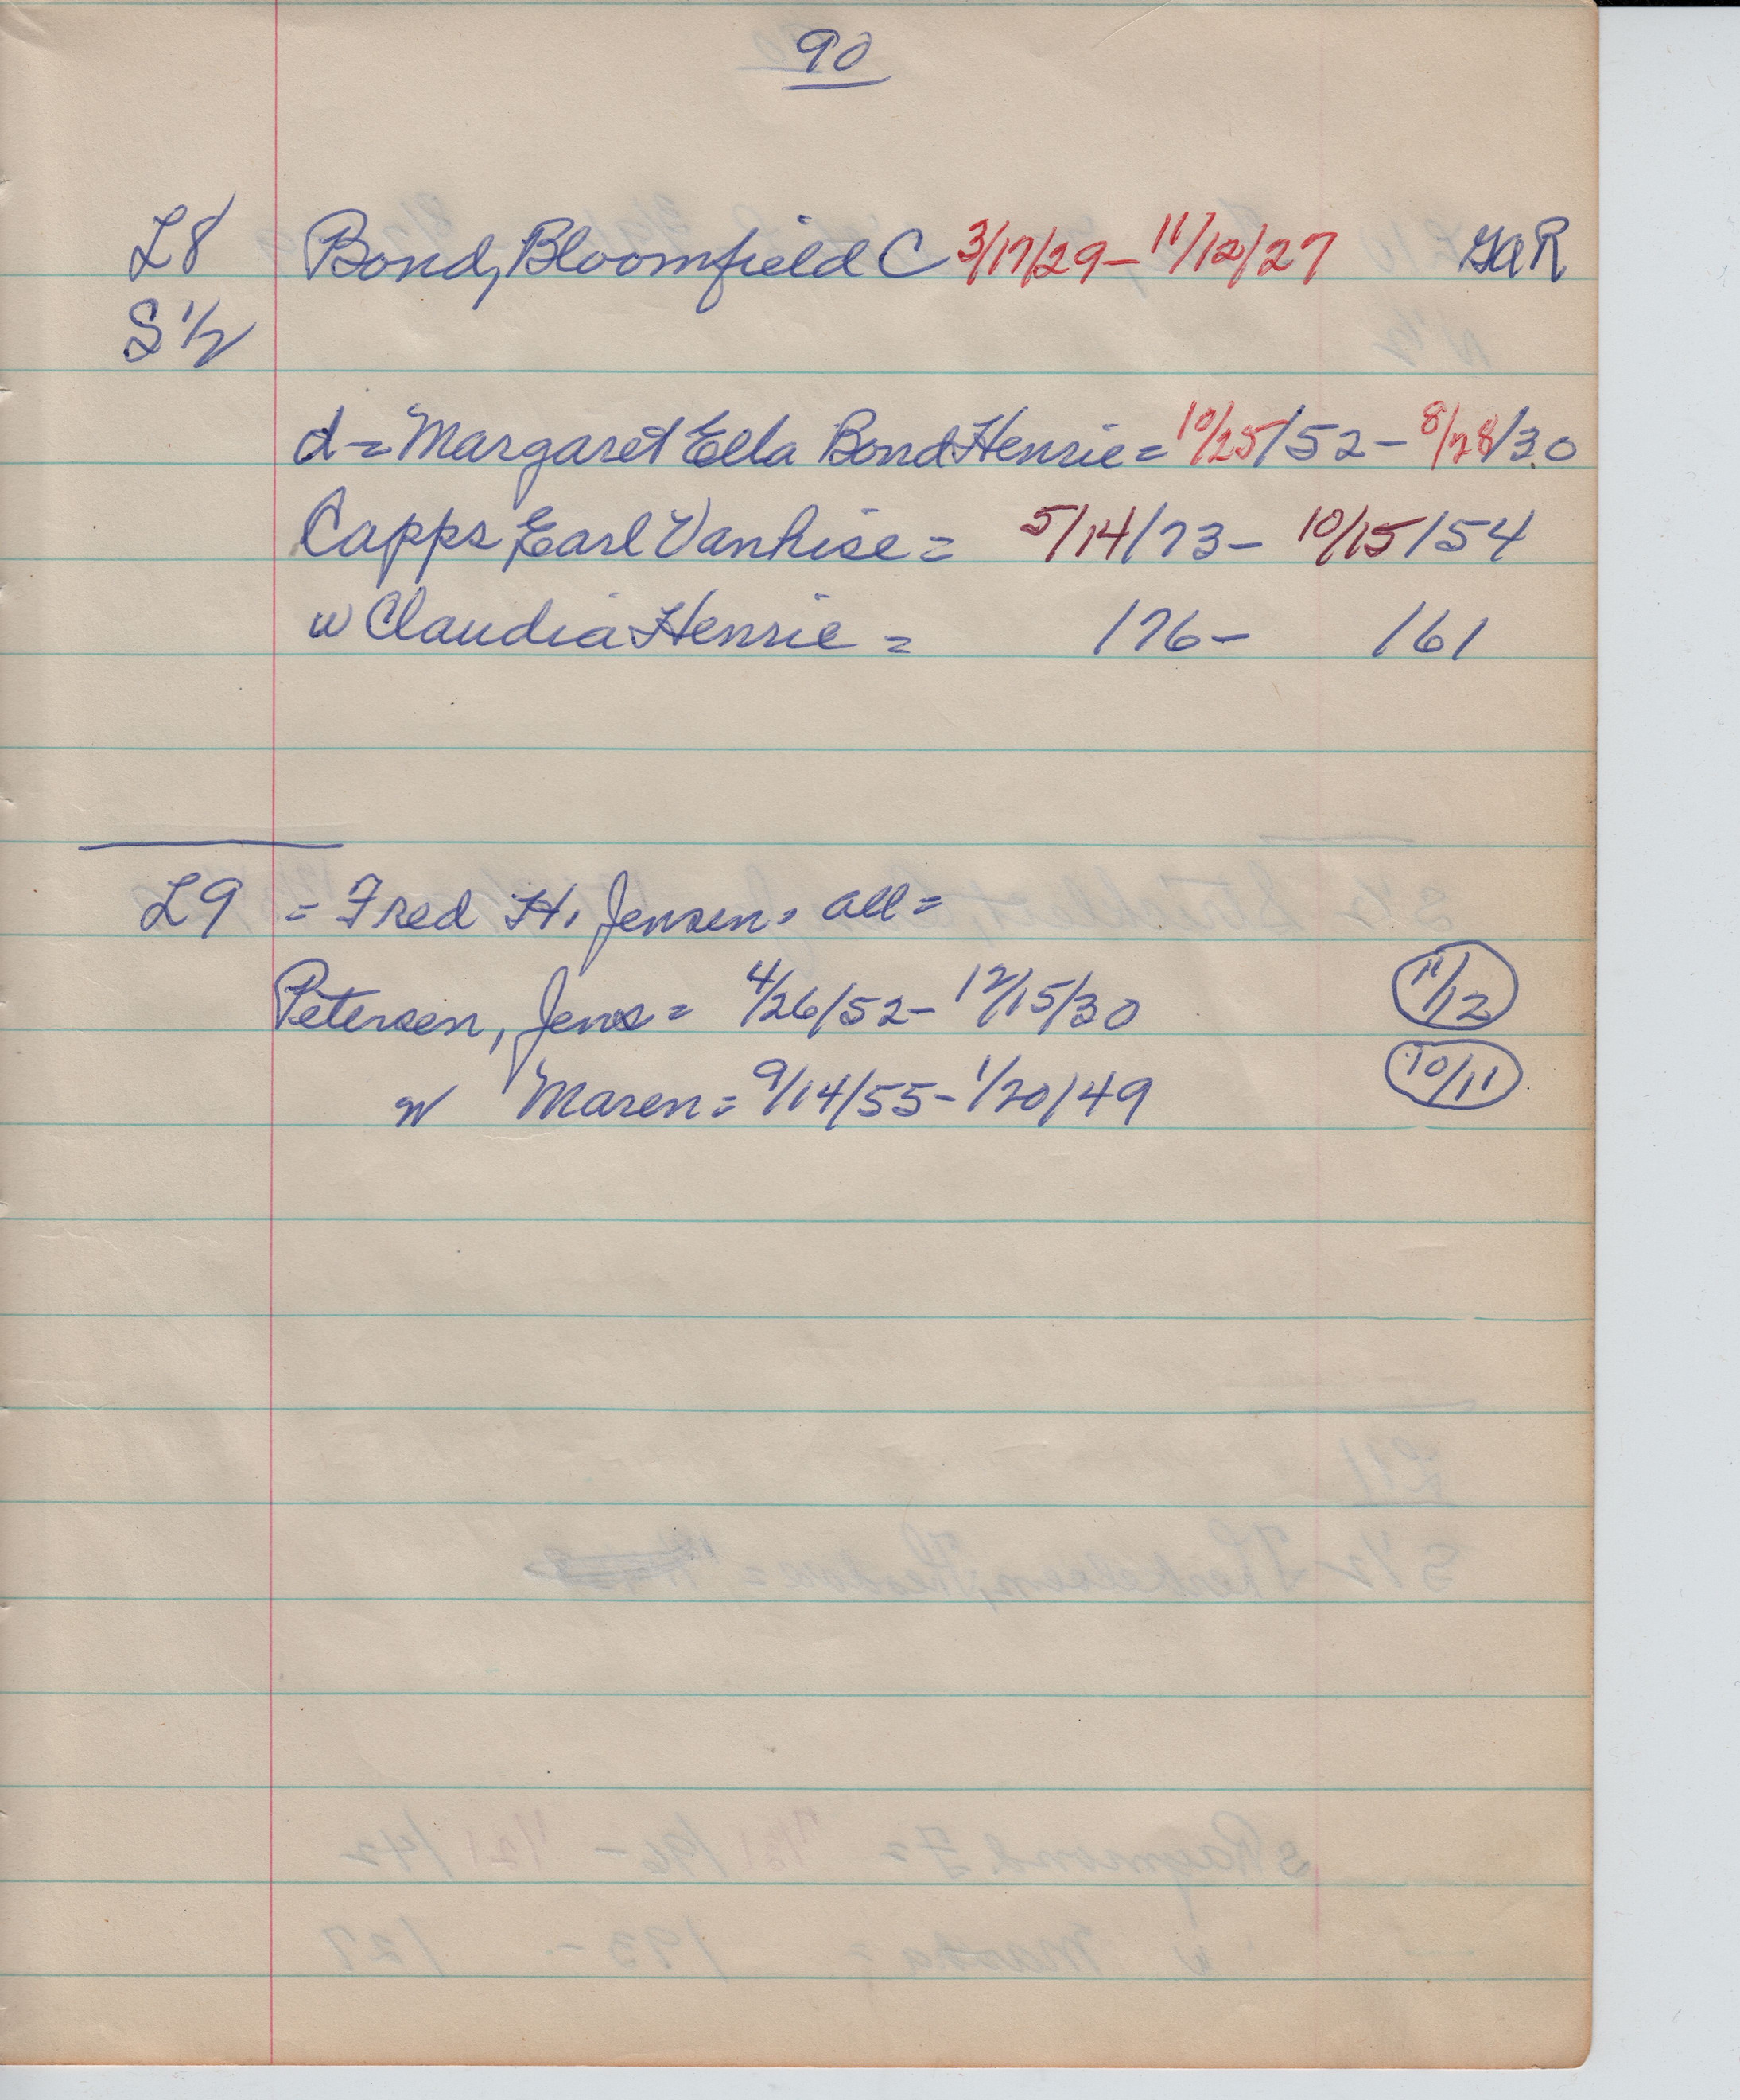 90
L8 Bond, Bloomfield C 3/17/29 - 11/12/27 GAR
S 1/2
d = Margaret Ella Bond Henrie = 10/25/52 - 8/28/30
Capps, Earl Vanhise = 5/14/73 - 10/15/54
w Claudia Henrie = /76 - /61
L9 = Fred H. Jensen, all =
Petersen, Jens = 4/26/52 - 12/15/30 11/12
w Maren = 9/14/55 - 1/20/49 10/11